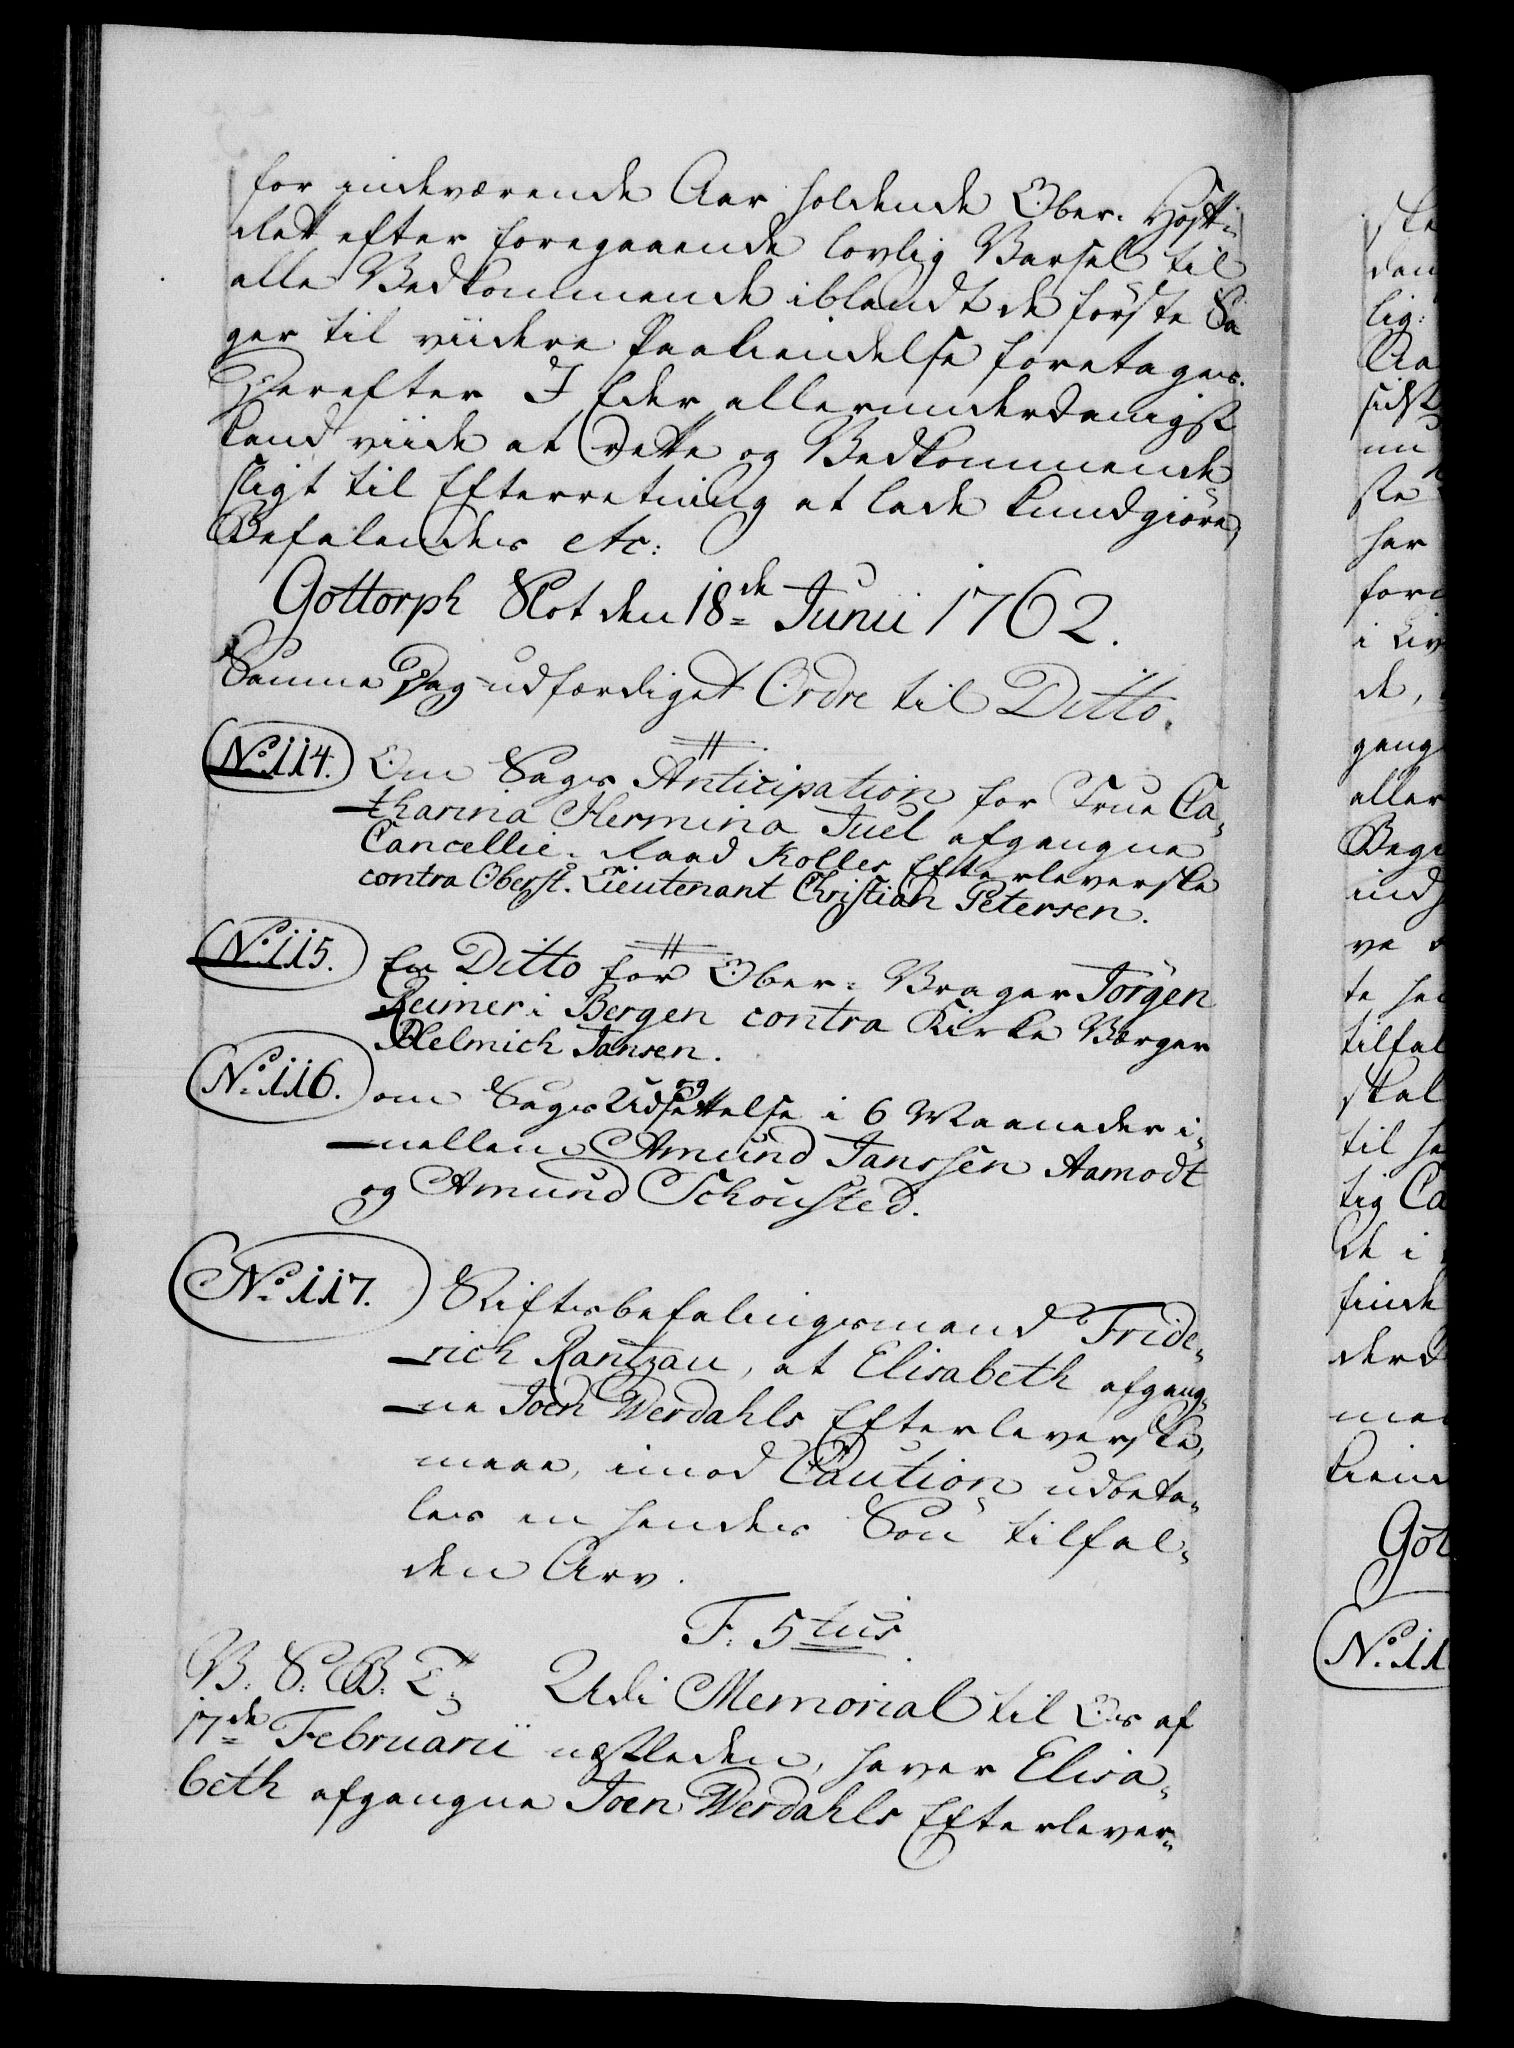 for indeværende Aar holdende Ober-Hofft-
rett efter foregaaende lovlig Varsel til
alle Vedkommende iblandt de første Sa
ger til viidere Paakiendelse foretages.
Derefter I Eder allerunderdanigst
kand viide at rette og Vedkommende
sligt til Efterretning at lade kundgiöre,
Befalendes etc:
Gottorph Slot den 18de Junii 1762.
Samme Dag udfærdiget Ordre til Ditto.
No. 114. Om Sags Anticipation for Frue Ca-
tharina Hermina Juel afgangne
Cancellie-Raad Kolles Efterleverske
contra Oberst-Lieutenant Christian Petersen.
No. 115. En Ditto for Ober-Vrager Jörgen
Reimer i Bergen contra Kirke Værger
Helmich Jansen.
No. 116. om Sags Udsættelse i 6 Maaneder i-
mellem Amund Janssen Aamodt
og Amund Schousted.
No. 117. Stiftsbefalingsmand Fride-
rich Rantzau, at Elisabeth afgang-
ne Joen Werdahls Efterleverske,
maae, imod Caution udbeta-
les en hendes Sön tilfal-
den Arv.
F: 5tus
V. S. G. T. Udi Memorial til Os af
17de Februarii næstleden, haver Elisa-
beth afgangne Joen Werdahls Efterlever-